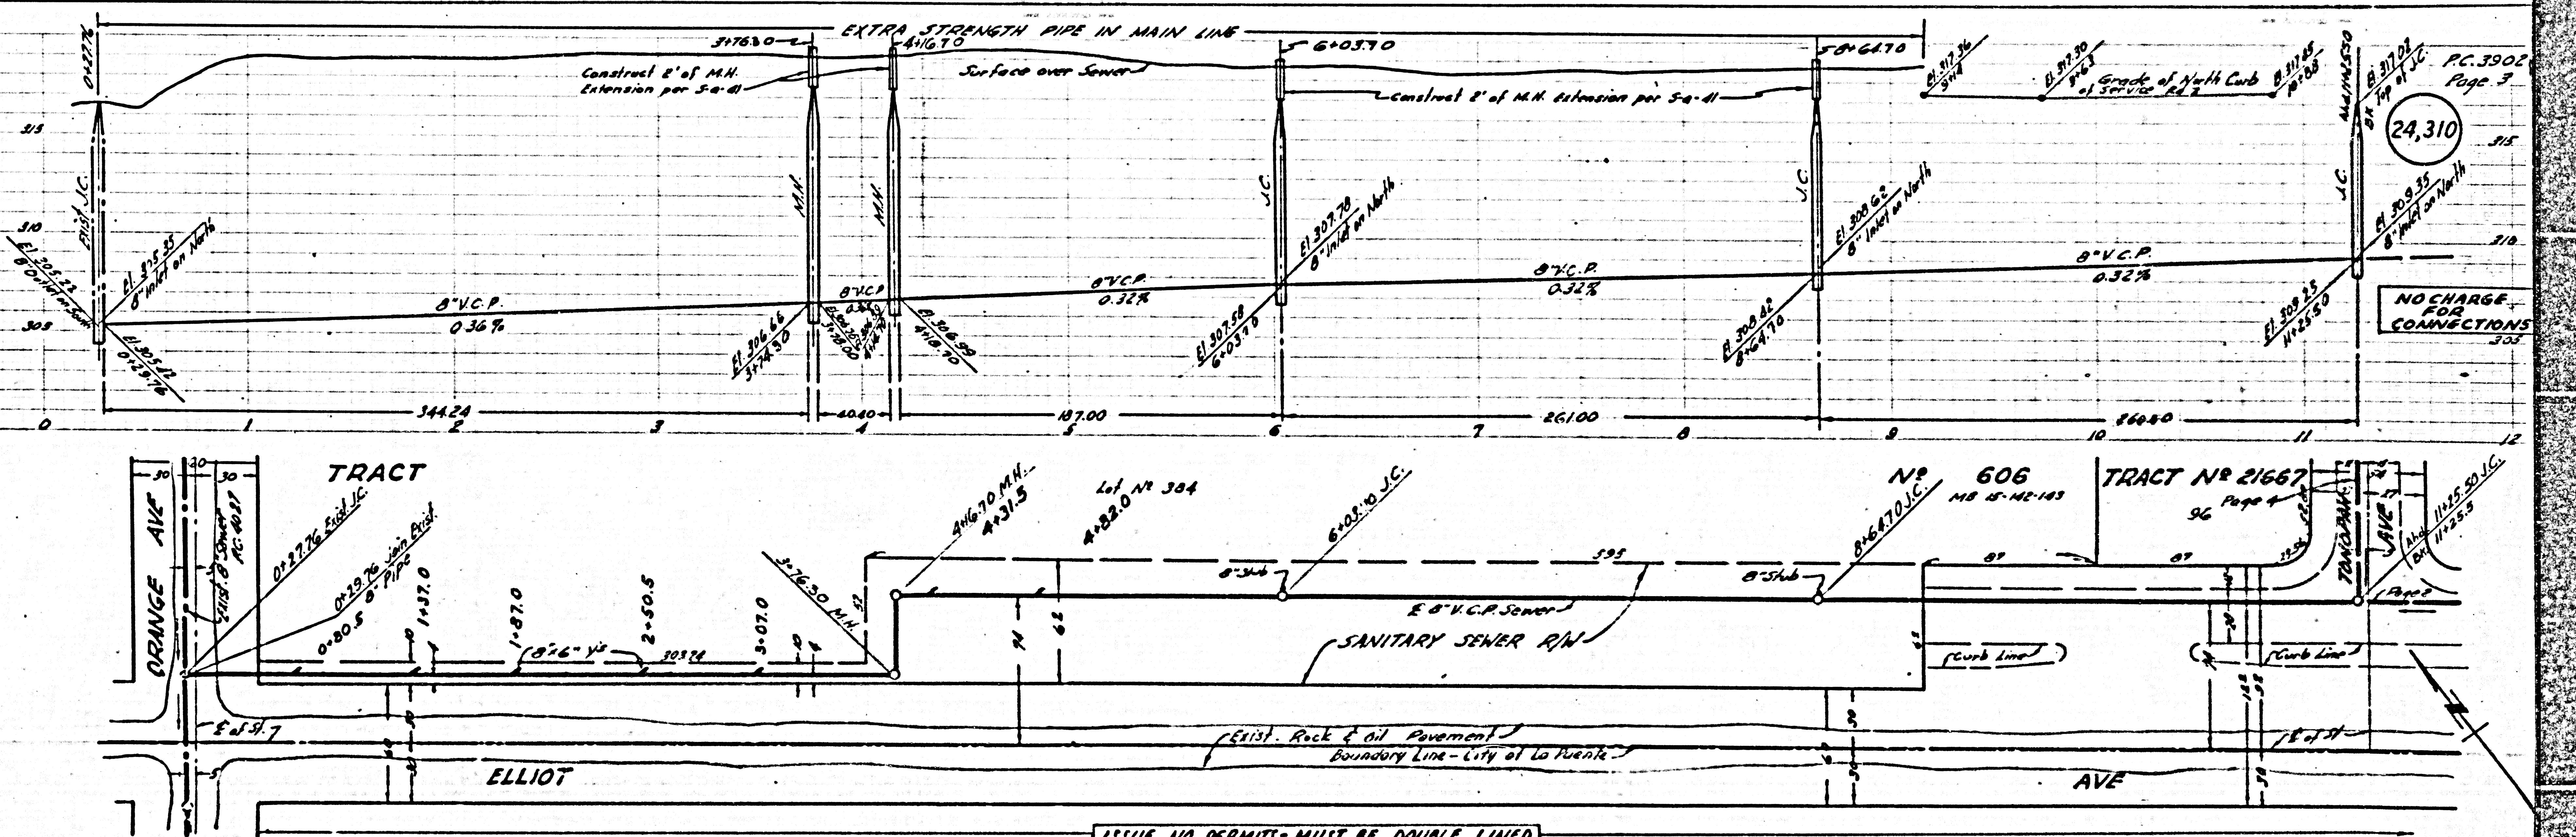 EXTRA STRENGTH PIPE IN MAIN LINE
0+27.76
3+76.30
4+16.70
6+03.70
8+64.70
Construct 2' of M.H.
Extension per S-a-41
Surface over Sewer
Construct 2' of M.H. Extension per S-a-41
El. 317.36
9+14
El. 317.30
9+63
Grade of North Curb
of Service Rd 2
El. 317.45
10+88
El. 317.02
Top of J.C.
P.C. 3902
Page 3
24,310
315
315
310
310
305
305
Exist. J.C.
M.H.
M.H.
J.C.
J.C.
J.C.
El. 305.22
8" Outlet on South
El. 305.35
8" Inlet on North
El. 305.42
0+29.76
8" V.C.P.
0.36%
El. 306.66
3+74.30
8" V.C.P.
El. 306.99
4+18.70
8" V.C.P.
0.32%
El. 307.78
8" Inlet on North
El. 307.58
6+03.70
8" V.C.P.
0.32%
El. 308.62
8" Inlet on North
El. 308.42
8+64.70
8" V.C.P.
0.32%
El. 309.35
8" Inlet on North
El. 309.25
11+25.50
NO CHARGE
FOR
CONNECTIONS
344.24
40.40
187.00
261.00
260.80
0 1 2 3 4 5 6 7 8 9 10 11 12
30 20 30
TRACT
Lot Nº 384
Nº 606
MB 15-142-143
TRACT Nº 21667
96
Page 4
ORANGE AVE
Exist 8" Sewer
P.C. 4027
0+27.76 Exist. J.C.
0+29.76 join Exist.
8" Pipe
0+80.5
1+37.0
1+87.0
2+50.5
3+07.0
8"x6" Y's
303.24
3+76.30 M.H.
4+16.70 M.H.
4+31.5
4+82.0
6+03.70 J.C.
8+64.70 J.C.
11+25.50 J.C.
11+25.5
TONOPAH AVE
8" Stub
8" Stub
595
87
87
52
74
62
℄ 8" V.C.P. Sewer
SANITARY SEWER R/W
Page 2
Curb Line
Curb Line
℄ of St.
Exist. Rock & Oil Pavement
Boundary Line - City of La Puente
℄ of St
ELLIOT
AVE
ISSUE NO PERMITS - MUST BE DOUBLE LINED